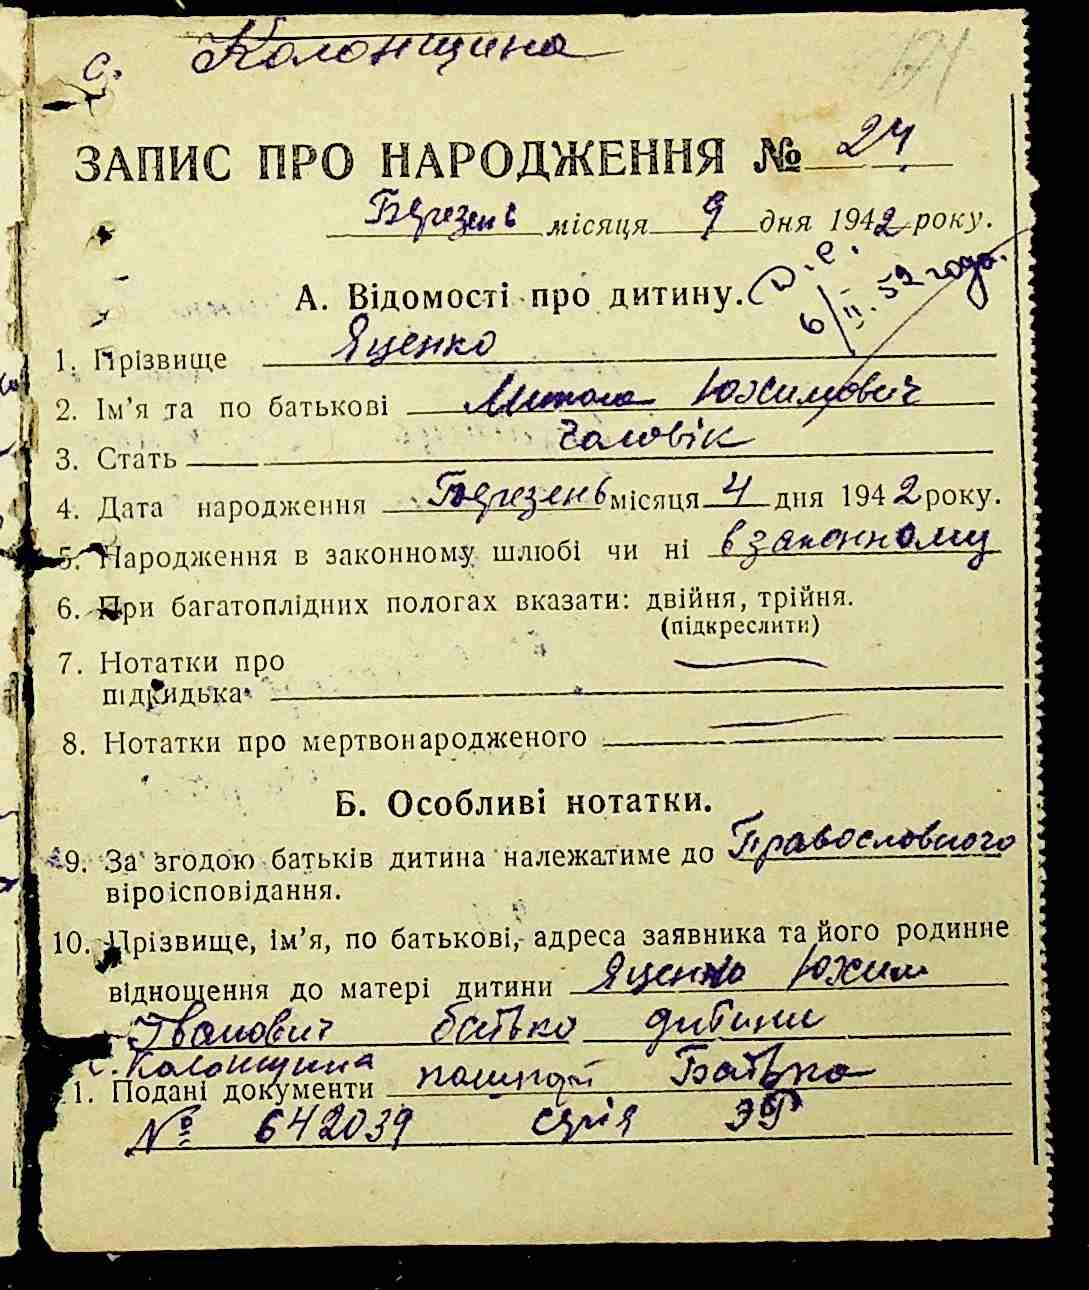 с. Колонщина
ЗАПИС ПРО НАРОДЖЕННЯ № 24
Березень місяця 9 дня 1942 року.
А. Відомості про дитину.
6/II. 52 года.
1. Прізвище Яценко
2. Ім’я та по батькові Микола Юхимович
3. Стать чоловік
4. Дата народження Березень місяця 4 дня 1942 року.
5. Народження в законному шлюбі чи ні в законному
6. При багатоплідних пологах вказати: двійня, трійня.
(підкреслити)
7. Нотатки про
підкидька
8. Нотатки про мертвонародженого
Б. Особливі нотатки.
9. За згодою батьків дитина належатиме до Православного
віроісповідання.
10. Прізвище, ім’я, по батькові, адреса заявника та його родинне
відношення до матері дитини Яценко Юхим
Іванович батько дитини
с. Колонщина
11. Подані документи пашпорт Батька
№ 642039 серія